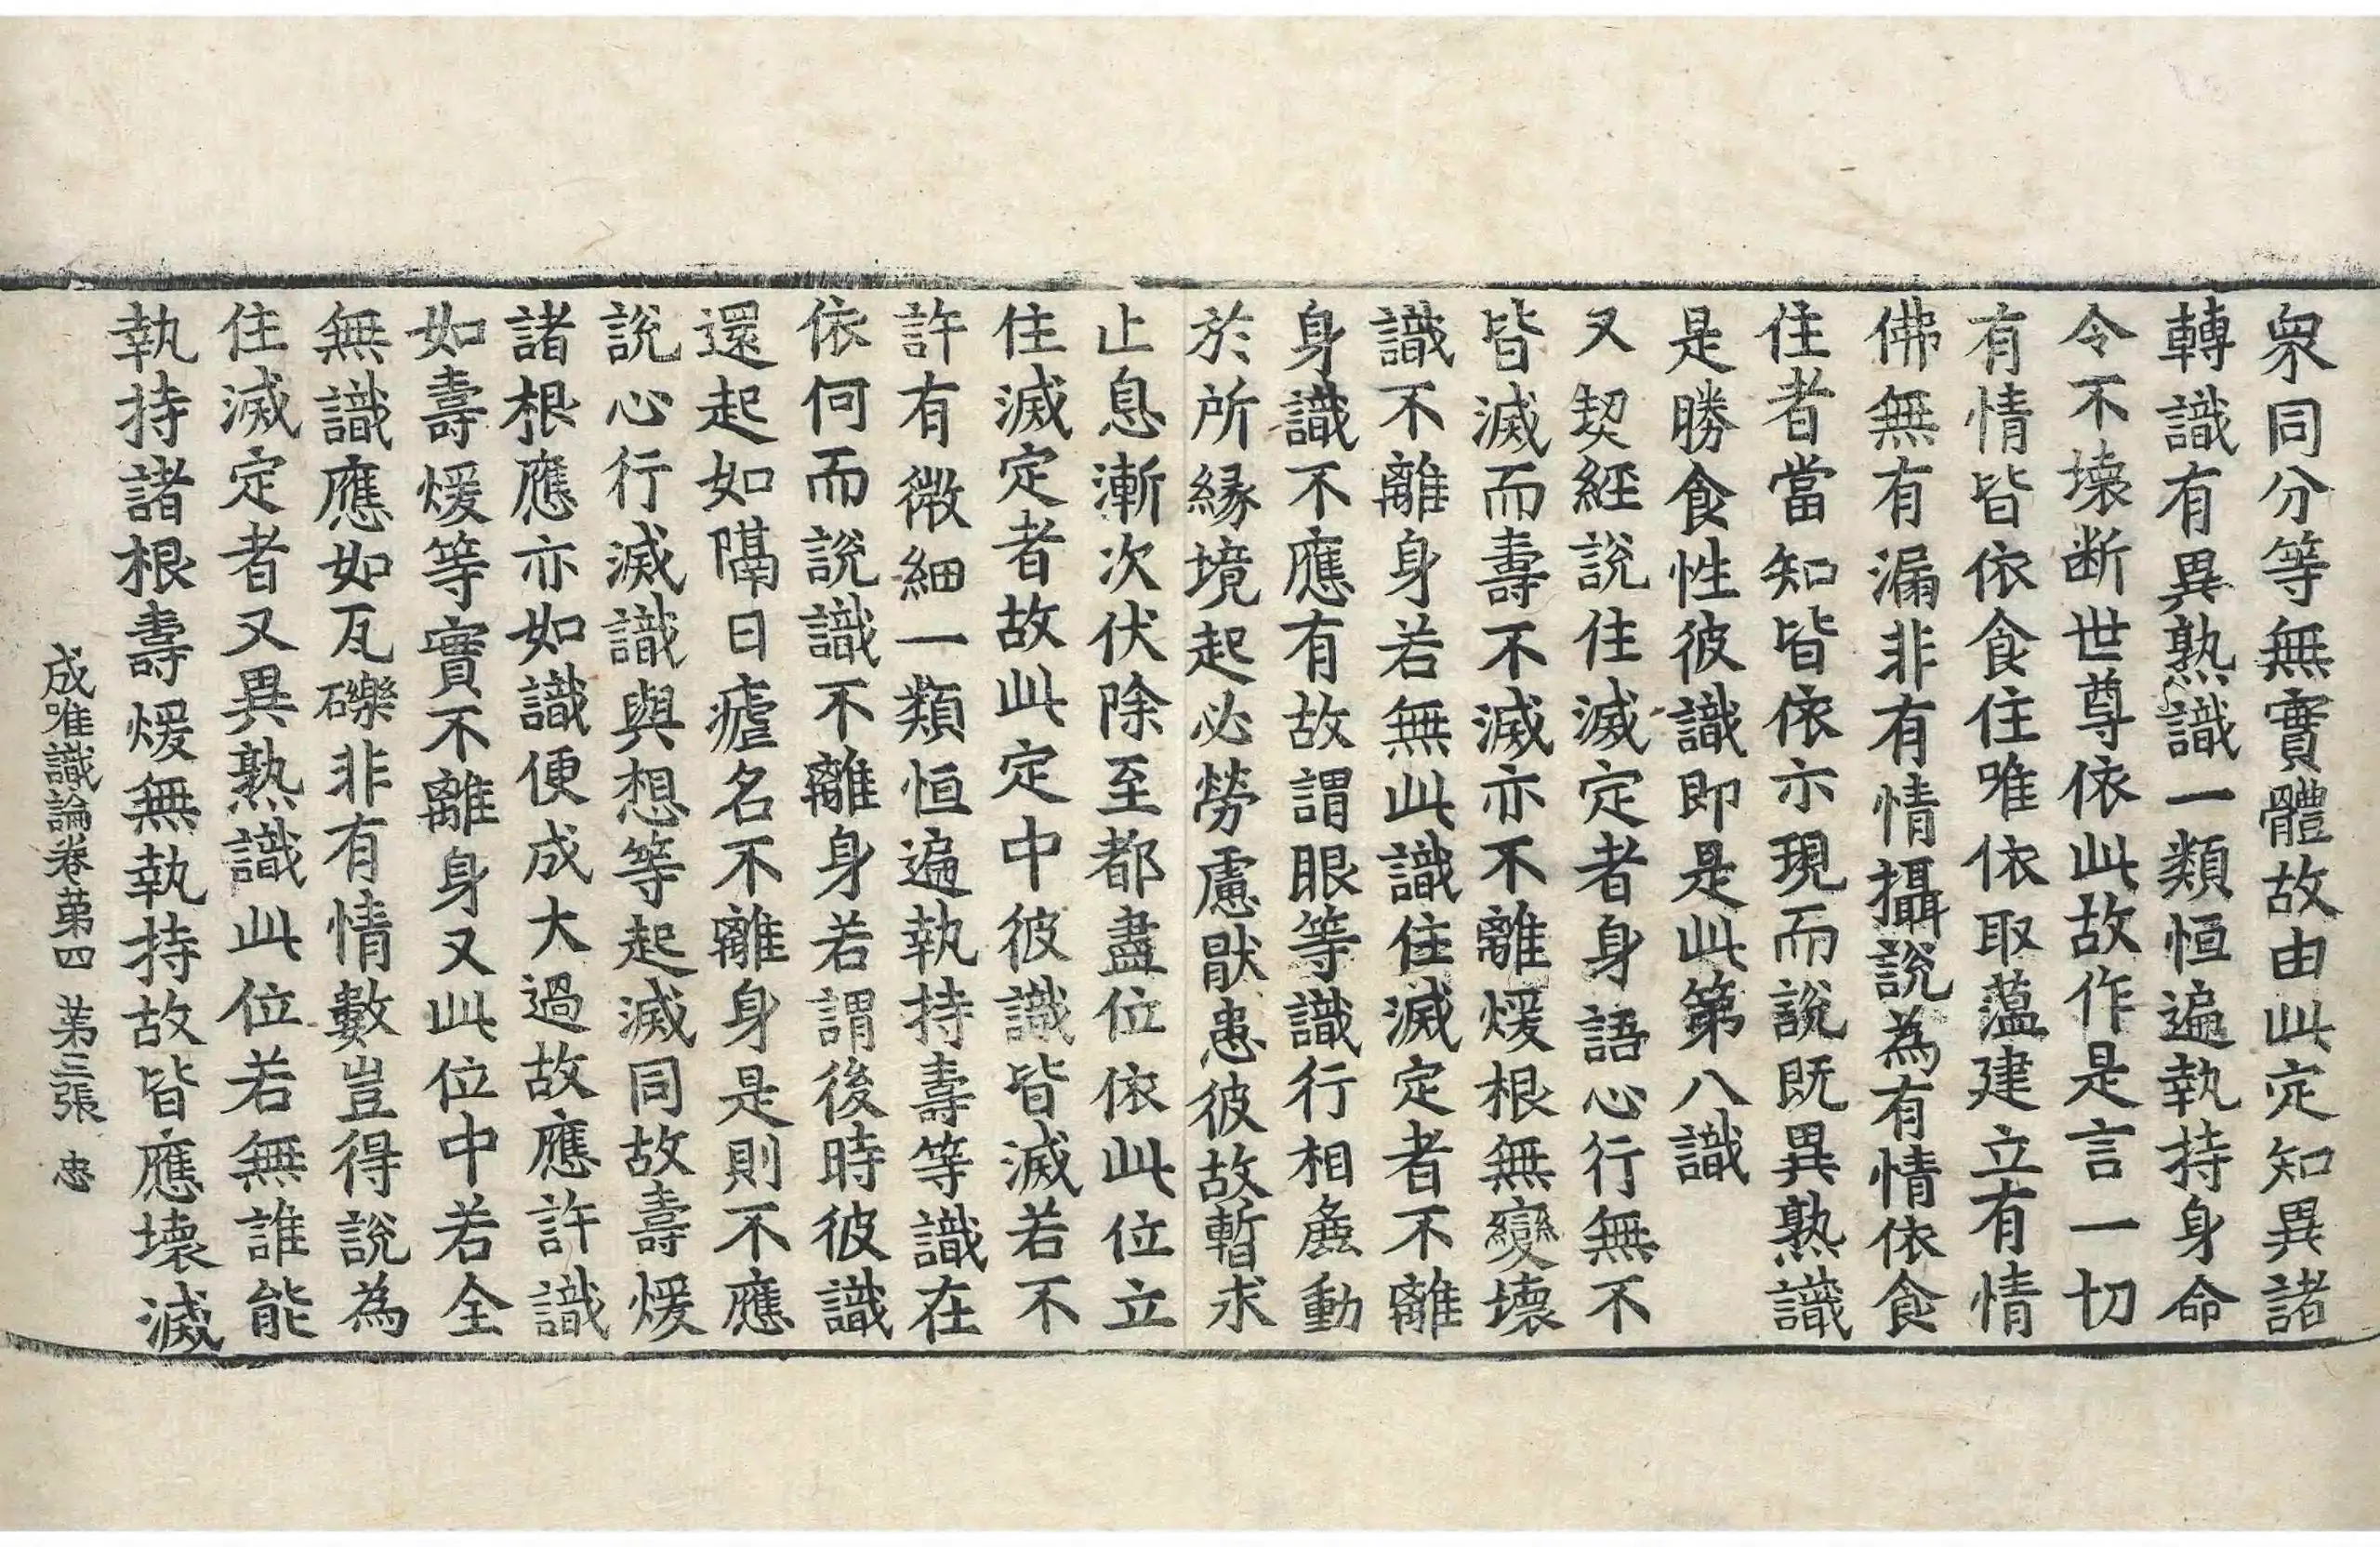 衆同分等無實體故由此定知異諸
轉識有異熟識一類恒遍執持身命
令不壞断世尊依此故作是言一切
有情皆依食住唯依取蘊建立有情
佛無有漏非有情攝說為有情依食
住者當知皆依示現而說既異熟識
是勝食性彼識即是此第八識
又契經說住滅定者身語心行無不
皆滅而壽不滅亦不離煖根無變壞
識不離身若無此識住滅定者不離
身識不應有故謂眼等識行相麁動
於所緣境起必勞慮猒患彼故暫求
止息漸次伏除至都盡位依此位立
住滅定者故此定中彼識皆滅若不
許有微細一類恒遍執持壽等識在
依何而說識不離身若謂後時彼識
還起如隔日瘧名不離身是則不應
說心行滅識與想等起滅同故壽煖
諸根應亦如識便成大過故應許識
如壽煖等實不離身又此位中若全
無識應如瓦礫非有情數豈得說為
住滅定者又異熟識此位若無誰能
執持諸根壽煖無執持故皆應壞滅
成唯識論卷苐四 苐三張 忠